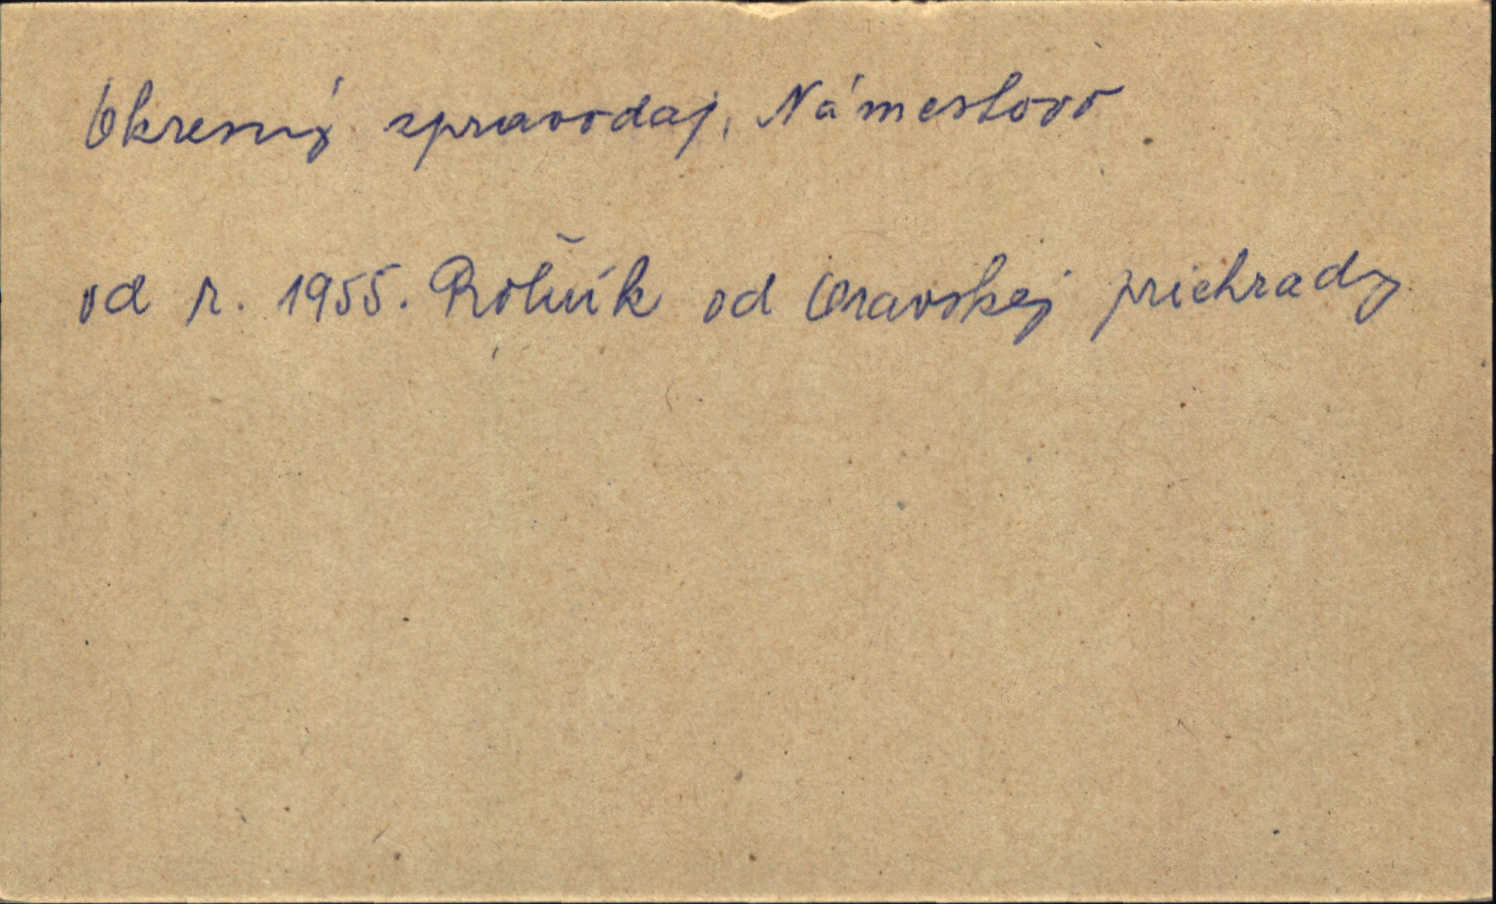 Okresný spravodaj, Námestovo
od r. 1955. Roľník od Oravskej priehrady